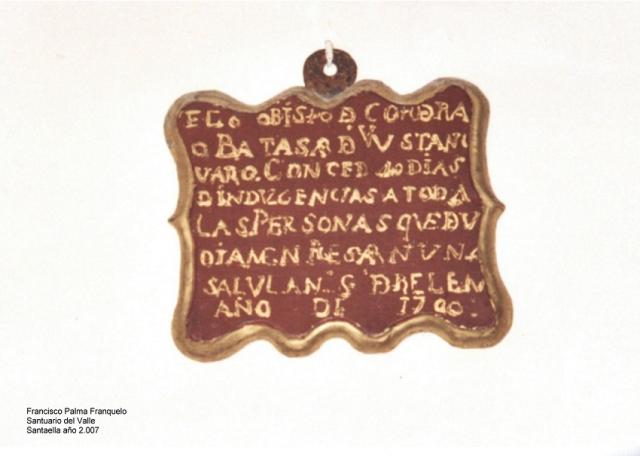 EL o OBISPO D CORDBA
D BATASAR D YUSTANC
VARO. CONCED 40 DIAS
D INDULGENCIAS A TODA
LAS PERSONAS QUE DV
OTAMEN RESAR UNA
SALV
AÑO DE 1790.
Francisco Palma Franquelo
Santuario del Valle
Santaella año 2.007